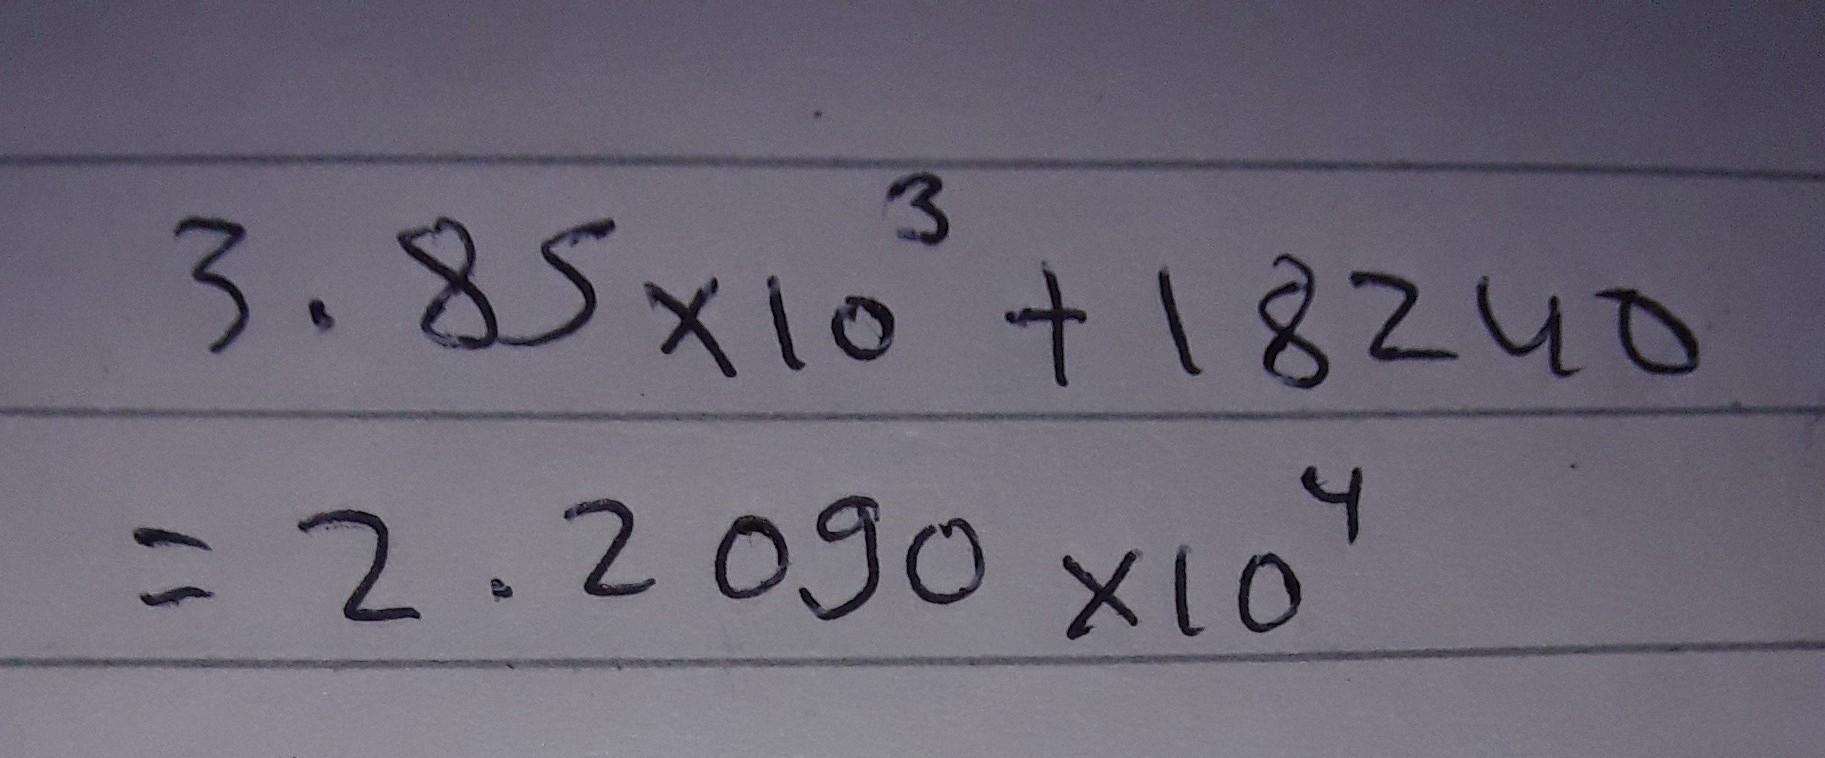 3.85x10³ + 18240
= 2.2090 x10⁴